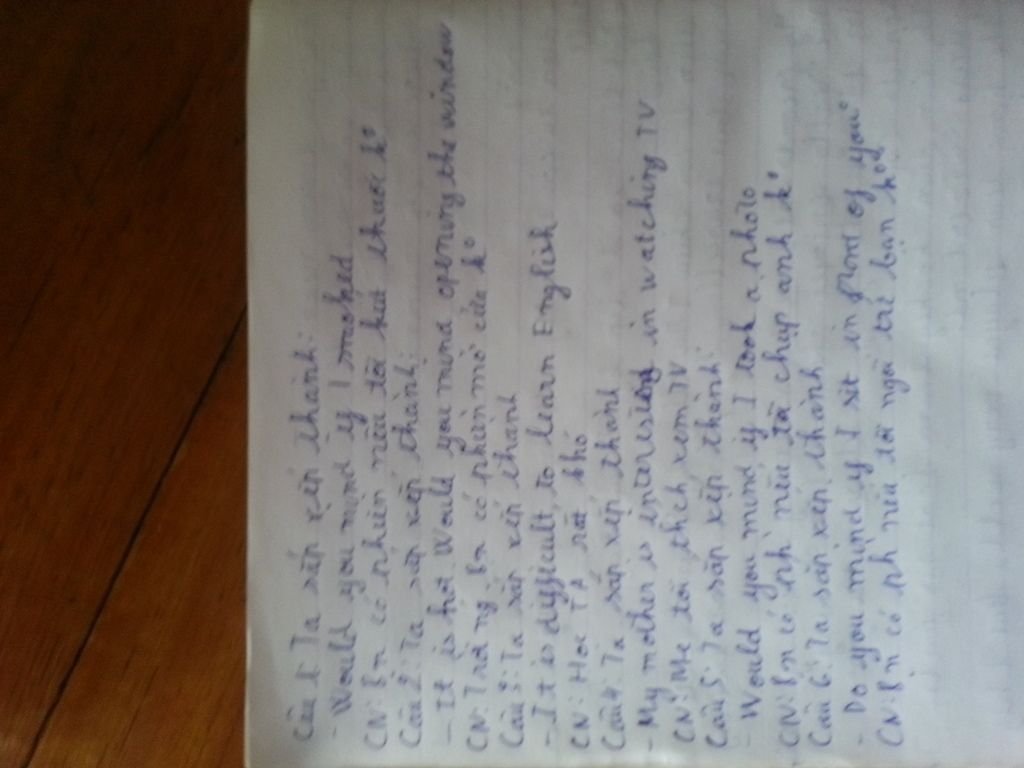 Câu 1 Ta sắp xếp thành:
- Would you mind if I smoked
CN: Bn có phiền nếu tôi hút thuốc k°
Câu 2: Ta sắp xếp thành:
- It is hot Would you mind opening the window
CN: Trời nóng, bn có phiền mở cửa k°
Câu 3: Ta sắp xếp thành
- It is difficult to learn English
CN: Học TA rất khó
Câu 4: Ta sắp xếp thành
- My mother is interesting in watching TV
CN: Mẹ tôi thích xem TV
Câu 5: Ta sắp xếp thành:
- Would you mind if I took a photo
CN: Bn có ph nếu tôi chụp anh k°
Câu 6: Ta sắp xếp thành
- Do you mind if I sit in front of you
CN: Bn có ph nếu tôi ngồi trc bạn k°